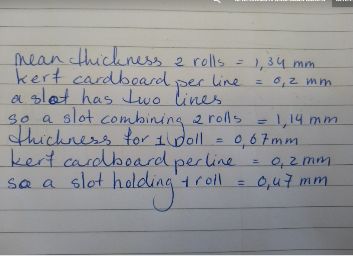 mean thickness 2 rolls = 1,34 mm
kerf cardboard per line = 0,2 mm
a slot has two lines
so a slot combining 2 rolls = 1,14 mm
thickness for 1 roll = 0,67 mm
kerf cardboard per line = 0,2 mm
so a slot holding 1 roll = 0,47 mm